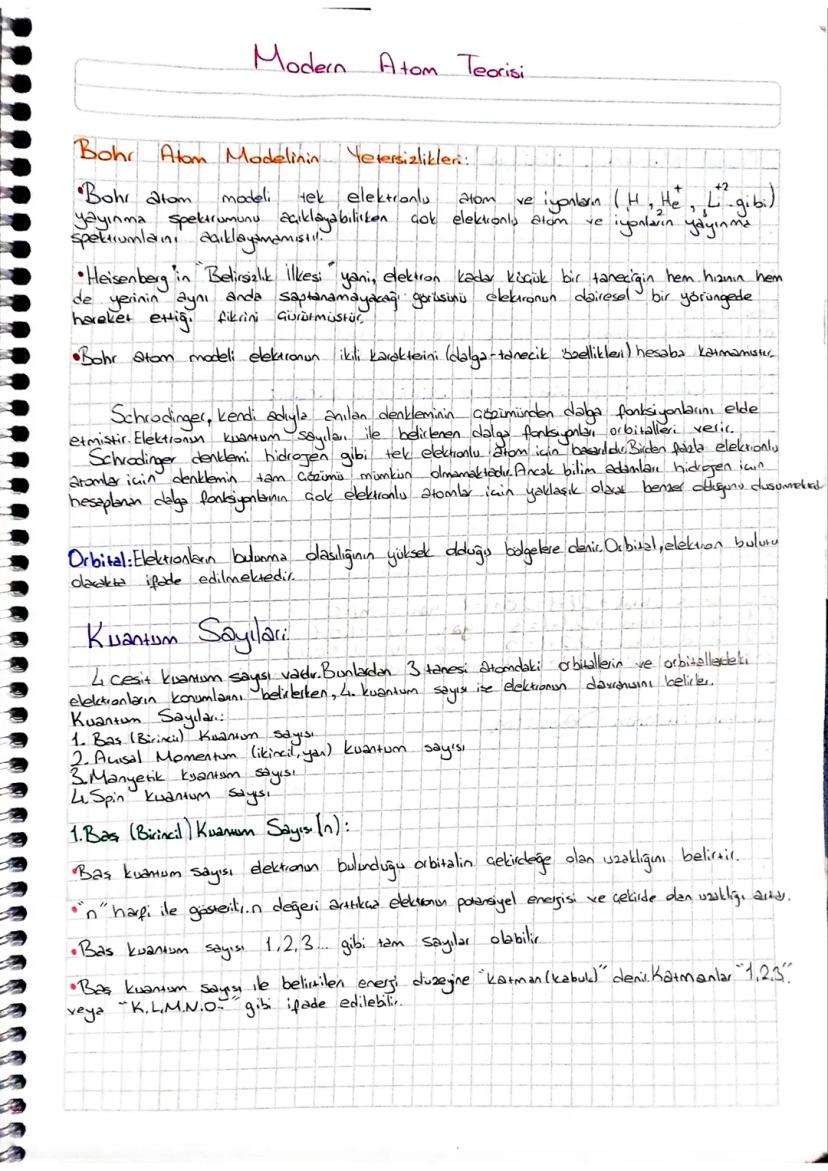 Modern Atom Teorisi
Bohr Atom Modelinin Yetersizlikleri:
•Bohr atom modeli tek elektronlu atom ve iyonların (H, ₂He⁺, ₃Li⁺² gibi)
yayınma spektrumunu açıklayabilirken çok elektronlu atom ve iyonların yayınma
spektrumlarını açıklayamamıştır.
•Heisenberg'in "Belirsizlik İlkesi" yani, elektron kadar küçük bir taneciğin hem hızının hem
de yerinin aynı anda saptanamayacağı görüşünü elektronun dairesel bir yörüngede
hareket ettiği fikrini çürütmüştür.
•Bohr atom modeli elektronun ikili karakterini (dalga-tanecik özellikleri) hesaba katmamıştır.
Schrodinger, kendi adıyla anılan denkleminin çözümünden dalga fonksiyonlarını elde
etmiştir. Elektronun kuantum sayıları ile belirlenen dalga fonksiyonları orbitalleri verir.
Schrodinger denklemi hidrojen gibi tek elektronlu atom için başarılıdır. Birden fazla elektronlu
atomlar için denklemin tam çözümü mümkün olmamaktadır. Ancak bilim adamları hidrojen için
hesaplanan dalga fonksiyonlarının çok elektronlu atomlar için yaklaşık olarak benzer olduğunu düşünmektedir
Orbital: Elektronların bulunma olasılığının yüksek olduğu bölgelere denir. Orbital, elektron bulutu
olarakta ifade edilmektedir.
Kuantum Sayıları
4 çeşit kuantum sayısı vardır. Bunlardan 3 tanesi atomdaki orbitallerin ve orbitallerdeki
elektronların konumlarını belirlerken, 4. kuantum sayısı ise elektronun davranışını belirler.
Kuantum Sayıları:
1. Baş (Birincil) Kuantum sayısı
2. Açısal Momentum (ikincil, yan) kuantum sayısı
3. Manyetik kuantum sayısı
4. Spin kuantum sayısı
1. Baş (Birincil) Kuantum Sayısı (n):
•Baş kuantum sayısı elektronun bulunduğu orbitalin çekirdeğe olan uzaklığını belirtir.
•"n" harfi ile gösterilir. n değeri arttıkça elektronun potansiyel enerjisi ve çekirde olan uzaklığı artar.
•Baş kuantum sayısı 1,2,3... gibi tam sayılar olabilir
•Baş kuantum sayısı ile belirtilen enerji düzeyine "katman (kabuk)" denir. Katmanlar "1,2,3.."
veya "K.L.M.N.O.." gibi ifade edilebilir.